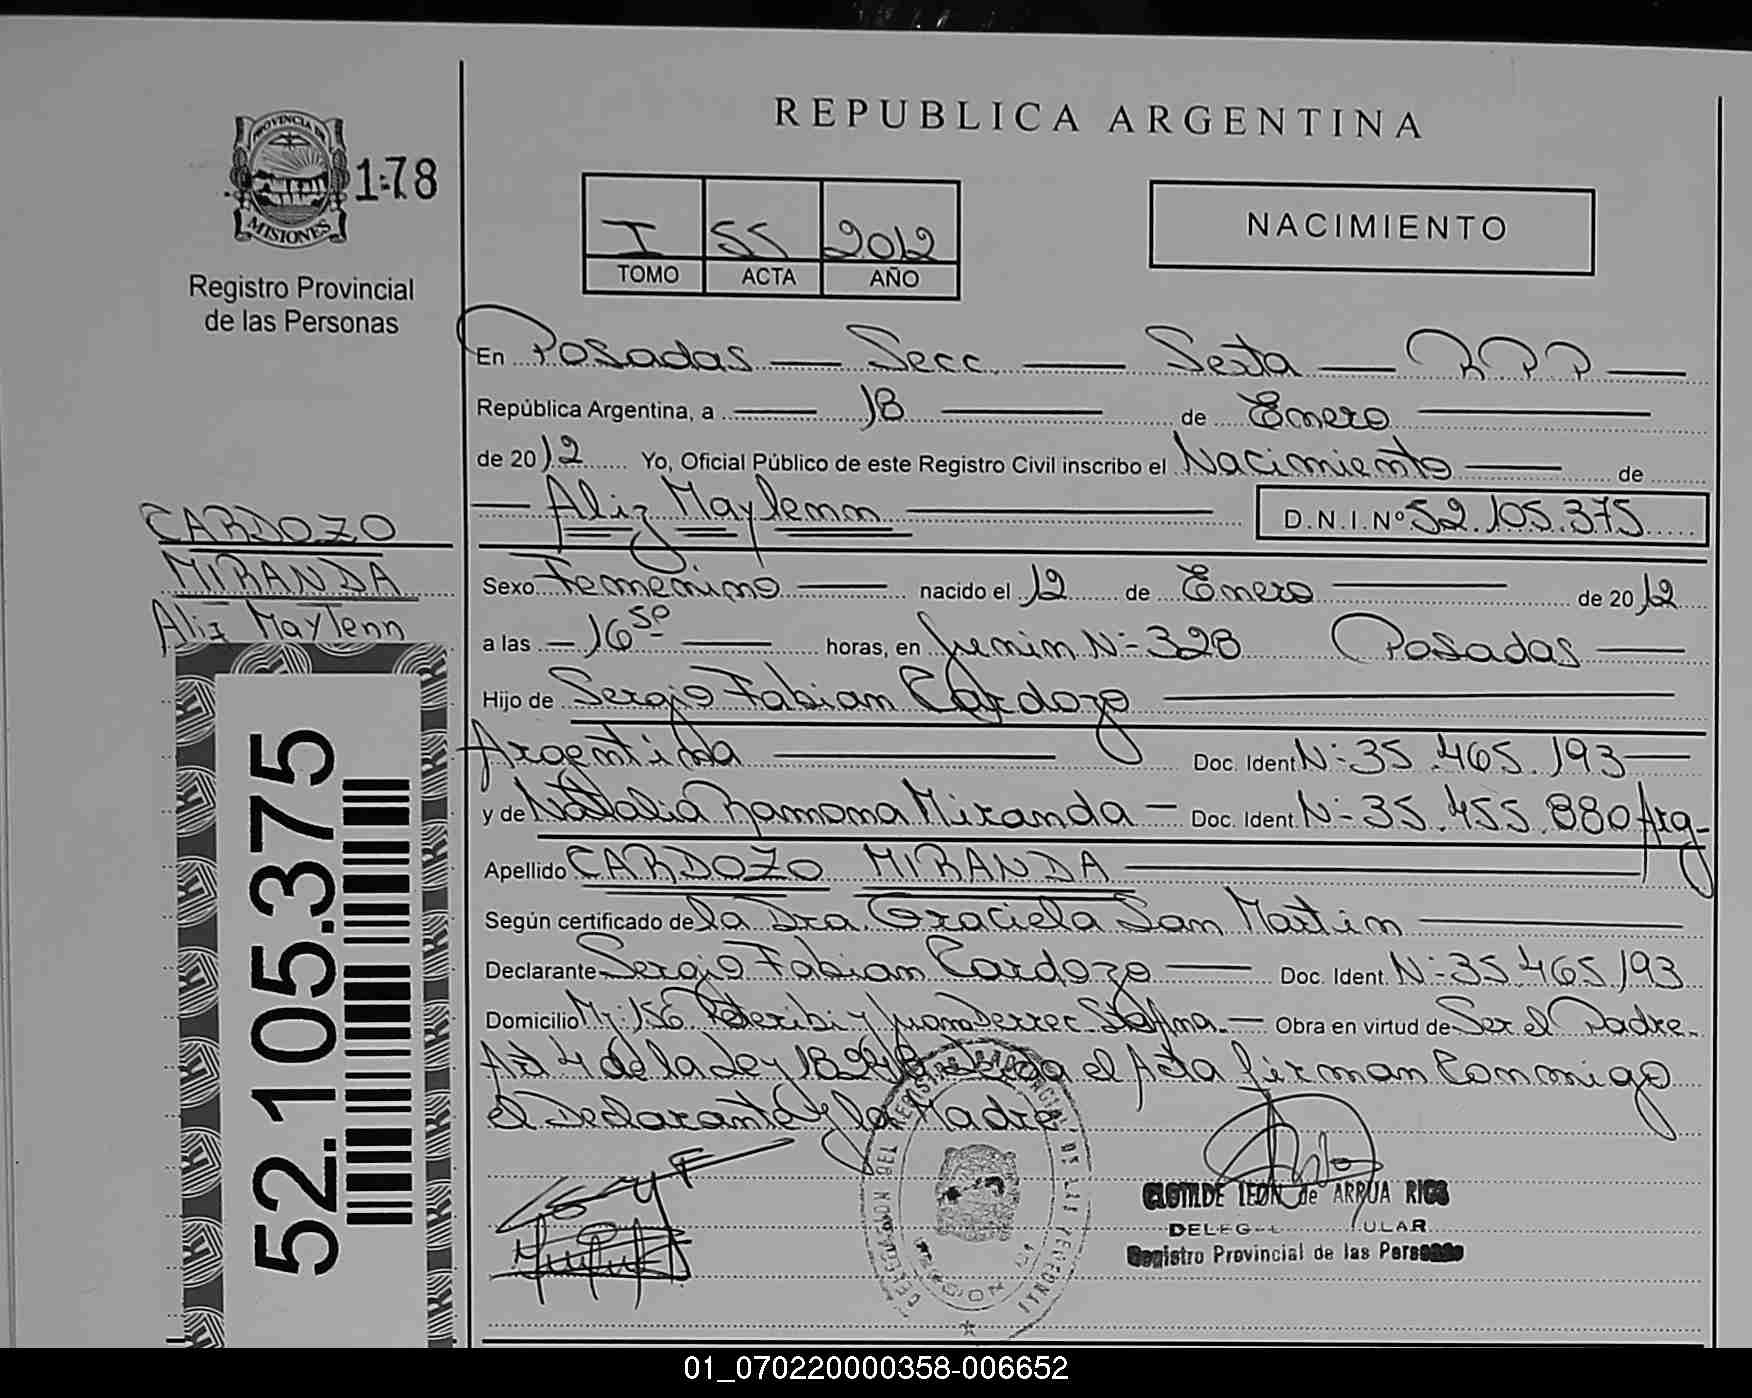 REPUBLICA ARGENTINA
PROVINCIA DE
MISIONES
178
Registro Provincial
de las Personas
I 55 2012
TOMO ACTA AÑO
NACIMIENTO
En Posadas — Secc. — Sexta — R P P —
República Argentina, a — 18 — de Enero —
de 2012 Yo, Oficial Público de este Registro Civil inscribo el Nacimiento — de
— Aliz Maylenn — D.N.I.Nº 52.105.375
CARDOZO
MIRANDA
Aliz Maylenn
Sexo Femenino — nacido el 12 de Enero — de 2012
a las — 16 50 — horas, en Junin N- 328 Posadas —
Hijo de Sergio Fabian Cardozo —
Argentina — Doc. Ident N- 35.465.193 —
y de Natalia Ramona Miranda — Doc. Ident. N- 35.455.880 Arg-
Apellido CARDOZO MIRANDA —
Según certificado de la Dra. Graciela San Martin —
Declarante Sergio Fabian Cardozo — Doc. Ident. N- 35.465.193
Domicilio 156 y — Obra en virtud de Ser el Padre.
Art 4 de la Ley el Acta firman Conmigo
el Declarante y la Madre
52.105.375
CLOTILDE LEON de ARRUA RIOS
Registro Provincial de las Personas
01_070220000358-006652